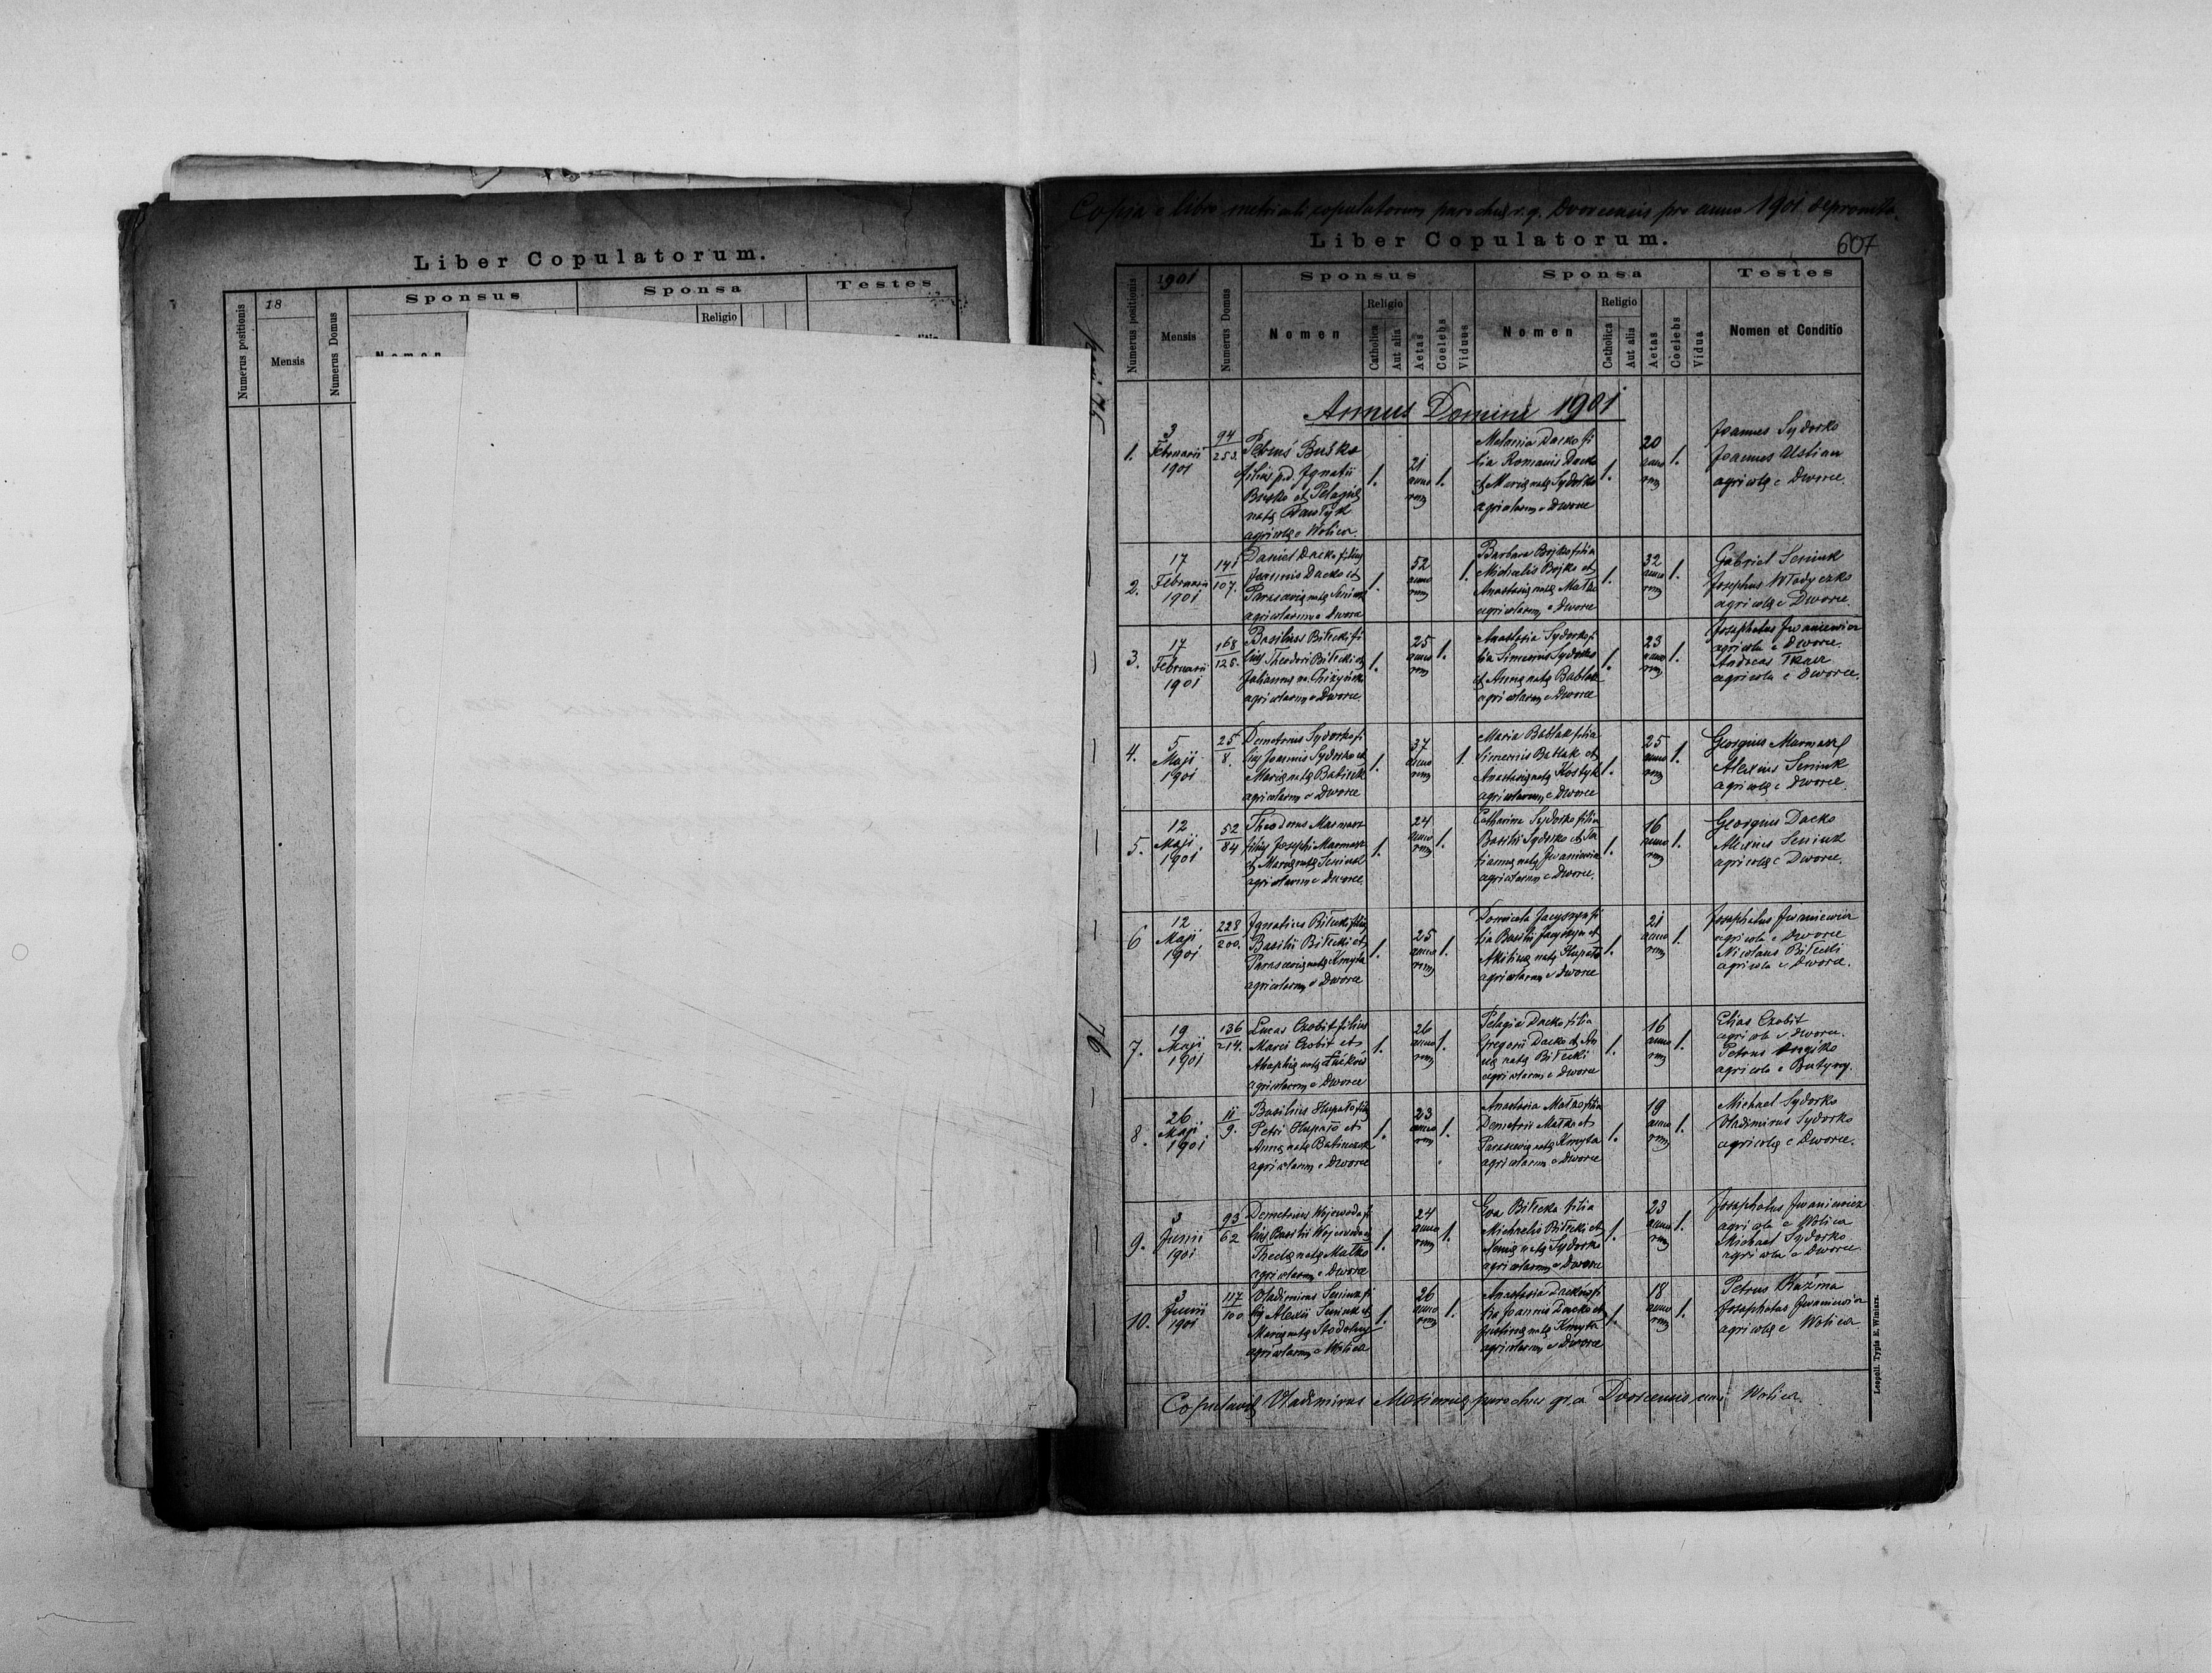 Liber Copulatorum.
Numerus positionis
18
Mensis
Numerus Domus
Sponsus
Sponsa
Religio
Testes
Copia e libro copulatorum r. g. pro anno 1901
Liber Copulatorum.
607
Numerus positionis
1901
Mensis
Numerus Domus
Sponsus
Nomen
Religio
Catholica
Aut alia
Aetas
Coelebs
Viduus
Sponsa
Nomen
Religio
Catholica
Aut alia
Aetas
Coelebs
Vidua
Testes
Nomen et Conditio
Annus Domini 1901
1.
3
Februarii
1901
94
253.
Petrus Busko
filius p.d. Ignatii
Busko et Pelagię
natę
agricolę e Wolica
1.
21
anno
rum
1.
Melania Dacko fi
lia Romanis Dacko
et Marię natę Sydorko
agricolarum e Dworce
1.
20
anno
rum
1.
Joannes Sydorko
Joannes Ustian
agricolę e Dworce.
2.
17
Februarii
1901
141
107.
Daniel Dacko filius
Joannis Dacko et
Parascevię natę Seniuk
agricolarum e Dworce
1.
52
anno
rum
1.
Barbara Bojko filia
Michaelis Bojko et
Anastasię natę Matko
agricolarum e Dworce
1.
32
anno
rum
1.
Gabriel Seniuk
Josephus Włodyczko
agricolę e Dworce.
3.
17
Februarii
1901
168
125.
Basilius Biłecki fi
lius Theodori Biłecki et
Juliannę
agricolarum e Dworce
1.
25
anno
rum
1.
Anastasia Sydorko fi
lia Simeonis Sydorko
et Annę natę Bablak
agricolarum e Dworce
1.
23
anno
rum
1.
Josaphatus Iwaniewicz
agricola e Dworce.
Andreas Tkacz
agricola e Dworce.
4.
5
Maji
1901
25
8.
Demetrius Sydorko fi
lius Joannis Sydorko et
Marię natę
agricolarum e Dworce
1.
37
anno
rum
1.
Maria Bablak filia
Simeonis Bablak et
Anastasię natę Kostyk
agricolarum e Dworce
1.
25
anno
rum
1.
Georgius Marmasz
Alexius Seniuk
agricolę e Dworce.
5.
12
Maji
1901
52
84
Theodorus Marmasz
filius Josephi Marmasz
et Marię natę Seniuk
agricolarum e Dworce
1.
24
anno
rum
1.
Catharina Sydorko filia
Basilii Sydorko et Ta
tiannę natę Iwaniewicz
agricolarum e Dworce.
1.
16
anno
rum
1.
Georgius Dacko
Alexius Seniuk
agricolę e Dworce.
6
12
Maji
1901
228
200.
Ignatius Biłecki filius
Basilii Biłecki et
Parascevię natę Kmyta
agricolarum e Dworce
1.
25
anno
rum
1.
Domicela Jacyszyn fi
lia Basilii Jacyszyn et
natę Hupało
agricolarum e Dworce
1.
21
anno
rum
1.
Josaphatus Iwaniewicz
agricola e Dworce
Nicolaus Biłecki
agricola e Dworce.
7.
19
Maji
1901
136
214.
Lucas Czobit filius
Marci Czobit et
Agaphię natę
agricolarum e Dworce
1.
26
anno
rum
1.
Pelagia Dacko filia
Gregorii Dacko et An
nę natę Biłecki
agricolarum e Dworce
1.
16
anno
rum
1.
Elias Czobit
agricola e Dworce.
Petrus
agricola e Butyny.
8.
26
Maji
1901
11
9.
Basilius Hupało filius
Petri Hupało et
Annę natę
agricolarum e Dworce
1.
23
anno
rum
1.
Anastasia Matko filia
Demetrii Matko et
Parascevię natę Kmyta
agricolarum e Dworce
1.
19
anno
rum
1.
Michael Sydorko
Vladimirus Sydorko
agricolę e Dworce.
9.
3
Junii
1901
93
62
Demetrius Wojewoda fi
lius Basilii Wojewoda et
Theclę natę Matko
agricolarum e Dworce
1.
24
anno
rum
1.
Eva Biłecka filia
Michaelis Biłecki et
Xenię natę Sydorko
agricolarum e Dworce
1.
23
anno
rum
1.
Josaphatus Iwaniewicz
agricola e Wolica
Michael Sydorko
agricola e Dworce
10.
3
Junii
1901
117
100
Vladimirus Seniuk fi
lius Alexii Seniuk et
Marię natę Stodolny
agricolarum e Wolica
1.
26
anno
rum
1.
Anastasia Dacko fi
lia Joannis Dacko et
Justinę natę Kmyta
agricolarum e Dworce
1.
18
anno
rum
1.
Petrus Kuźma
Josaphatus Iwaniewicz
agricolę e Wolica
Copulavit Vladimirus parochus gr. c. Dvorcensis cum Wolica
Leopoli. Typis E. Winiarz.
76